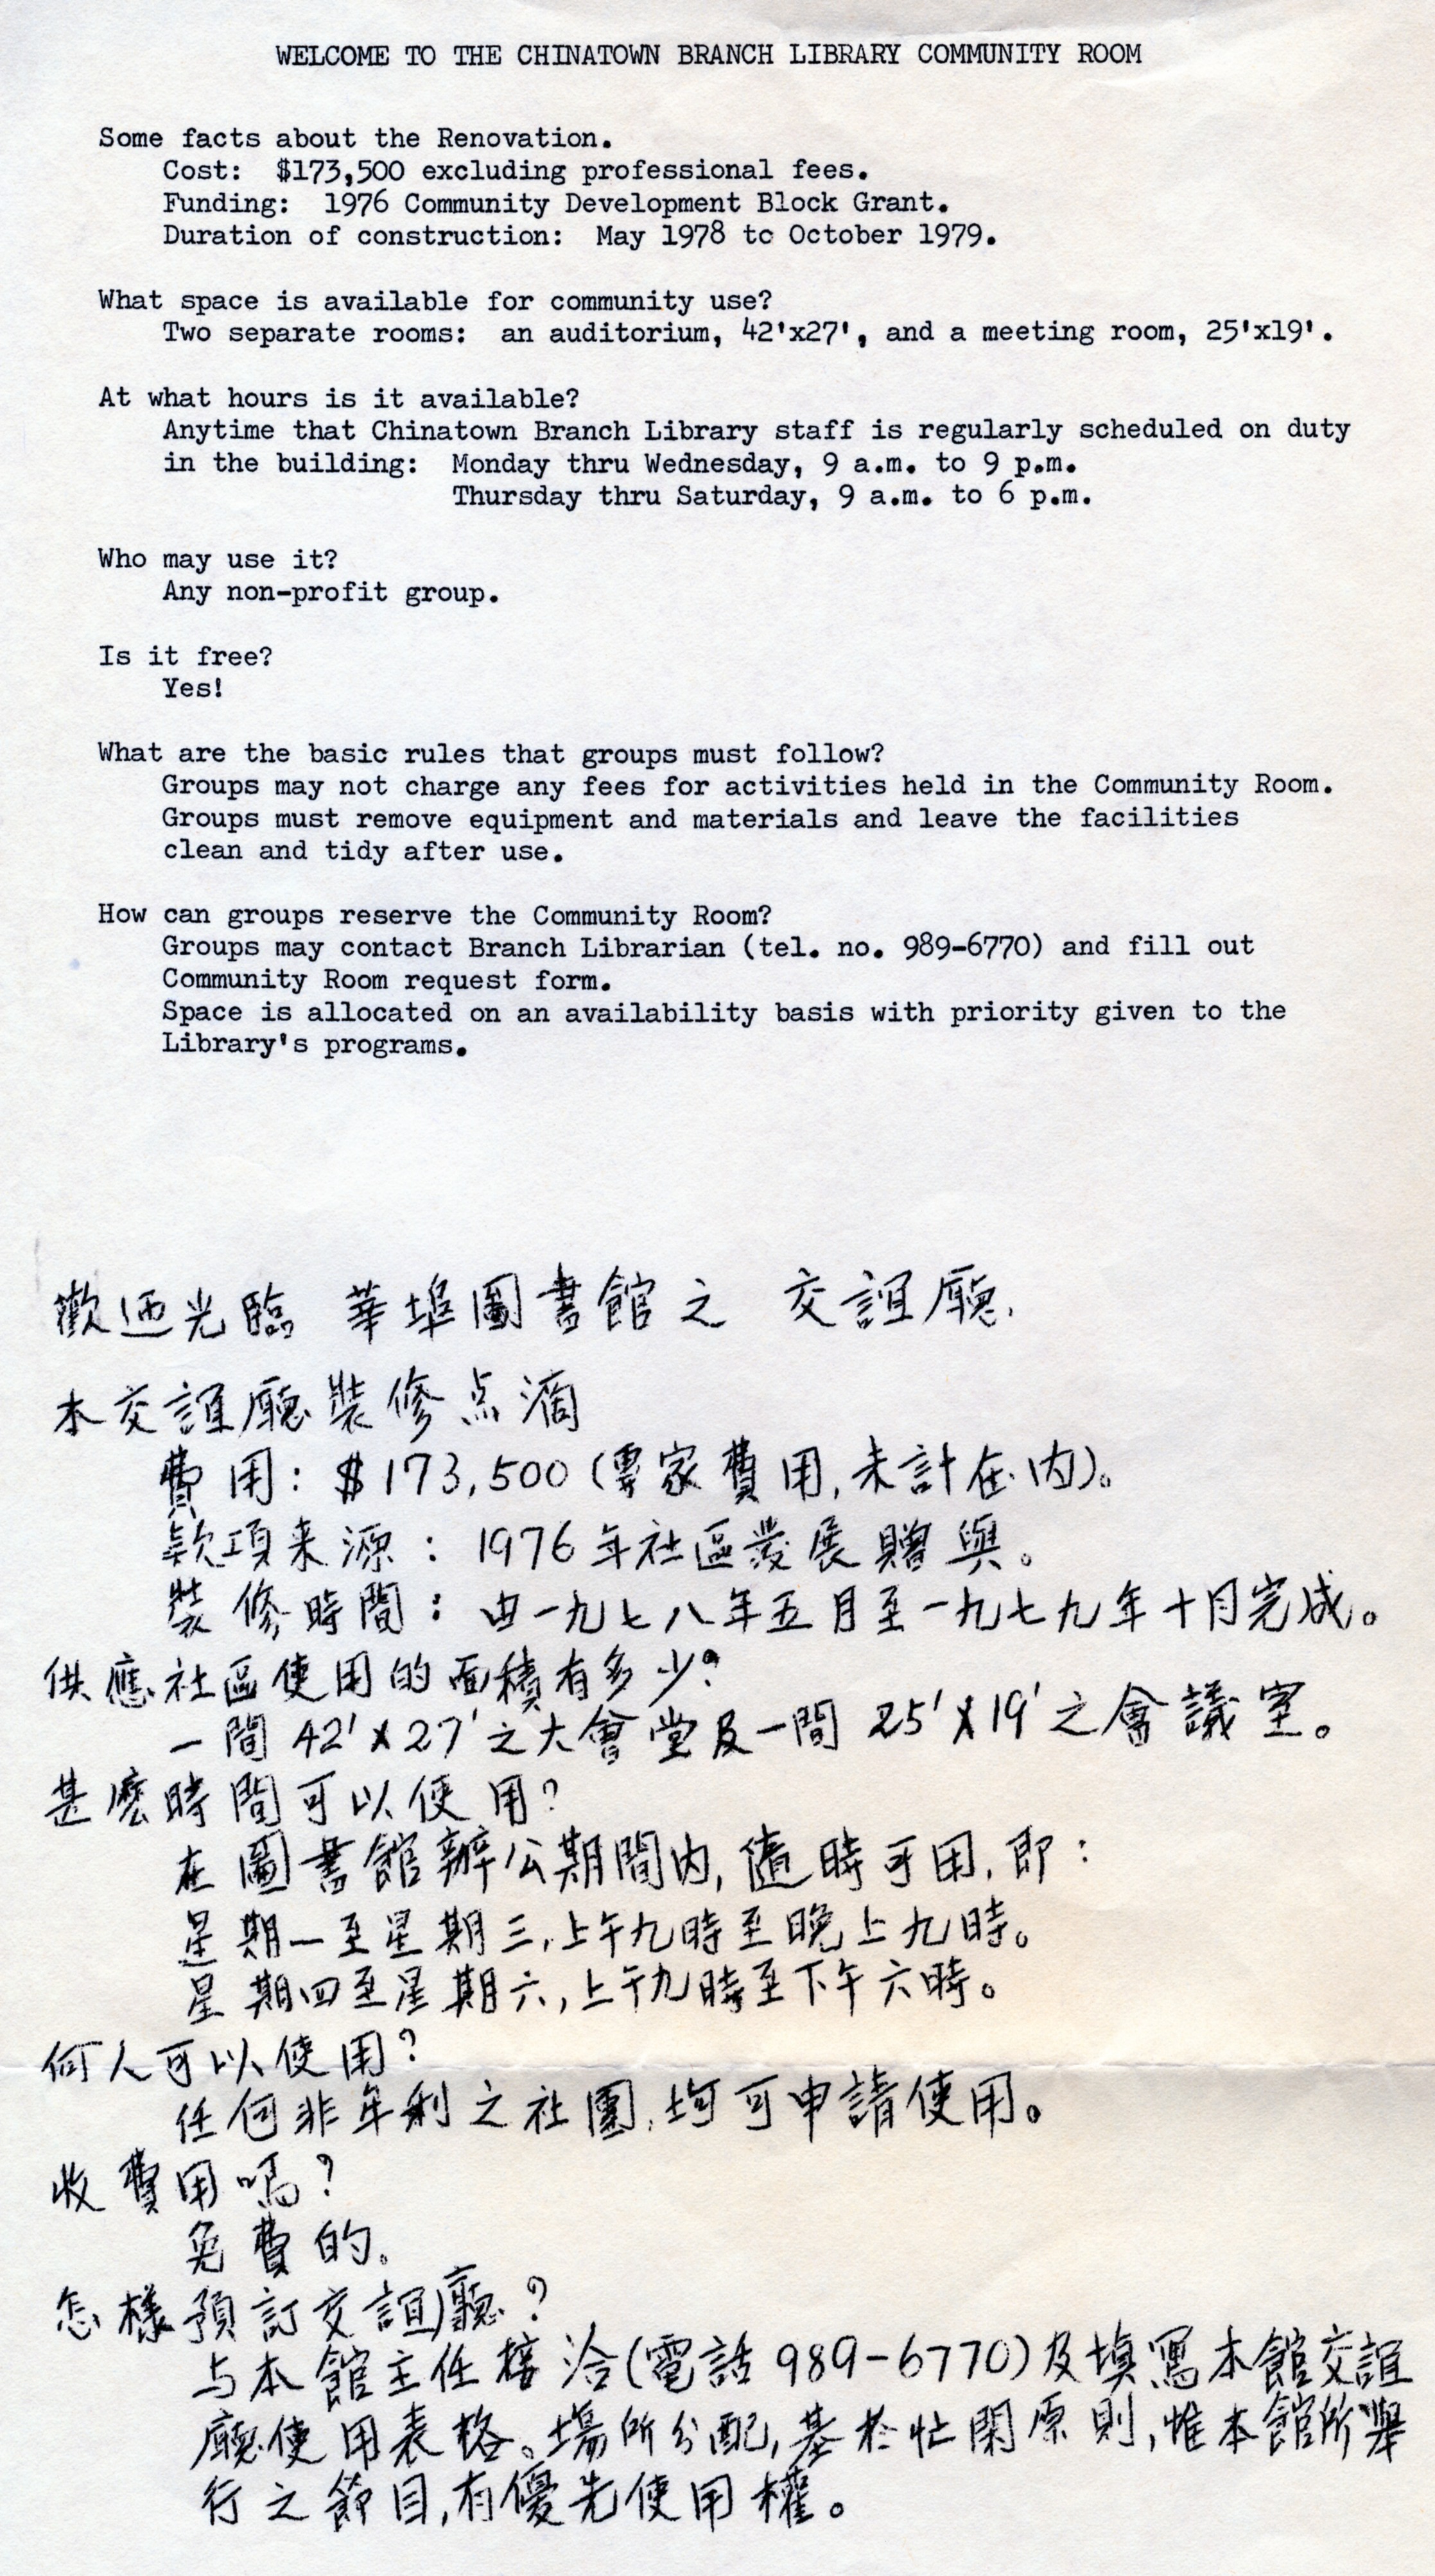 WELCOME TO THE CHINATOWN BRANCH LIBRARY COMMUNITY ROOM
Some facts about the Renovation.
Cost: $173,500 excluding professional fees.
Funding: 1976 Community Development Block Grant.
Duration of construction: May 1978 to October 1979.
What space is available for community use?
Two separate rooms: an auditorium, 42'x27', and a meeting room, 25'x19'.
At what hours is it available?
Anytime that Chinatown Branch Library staff is regularly scheduled on duty
in the building: Monday thru Wednesday, 9 a.m. to 9 p.m.
Thursday thru Saturday, 9 a.m. to 6 p.m.
Who may use it?
Any non-profit group.
Is it free?
Yes!
What are the basic rules that groups must follow?
Groups may not charge any fees for activities held in the Community Room.
Groups must remove equipment and materials and leave the facilities
clean and tidy after use.
How can groups reserve the Community Room?
Groups may contact Branch Librarian (tel. no. 989-6770) and fill out
Community Room request form.
Space is allocated on an availability basis with priority given to the
Library's programs.
歡迎光臨 華埠圖書館之 交誼廳.
本交誼廳裝修点滴
費用: $173,500 (專家費用,未計在內)。
款項来源: 1976年社區發展贈與。
裝修時間: 由一九七八年五月至一九七九年十月完成。
供應社區使用的面積有多少?
一間 42'x27'之大會堂及一間 25'x19'之會議室。
甚麽時間可以使用?
在圖書館辦公期間內,隨時可用,即:
星期一至星期三,上午九時至晚上九時。
星期四至星期六,上午九時至下午六時。
何人可以使用?
任何非牟利之社團,均可申請使用。
收費用嗎?
免費的。
怎樣預訂交誼廳?
与本館主任接洽(電話 989-6770)及填寫本館交誼
廳使用表格。場所分配,基於忙閑原則,惟本館所舉
行之節目,有優先使用權。